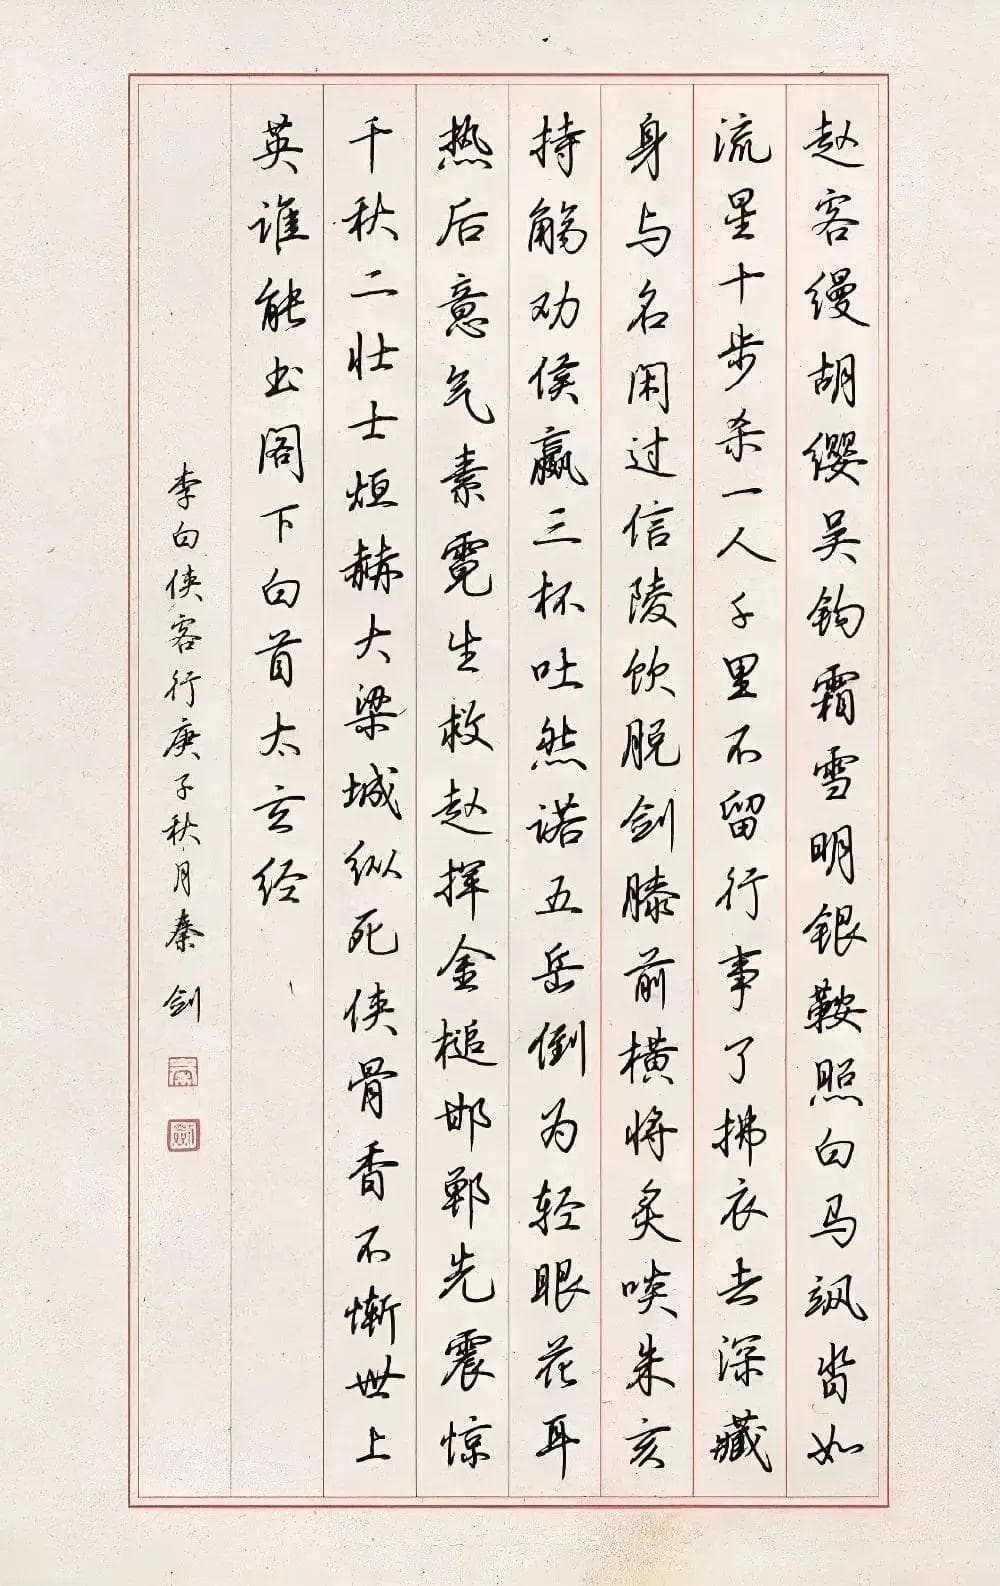 赵客缦胡缨吴钩霜雪明银鞍照白马飒沓如
流星十步杀一人千里不留行事了拂衣去深藏
身与名闲过信陵饮脱剑膝前横将炙啖朱亥
持觞劝侯嬴三杯吐然诺五岳倒为轻眼花耳
热后意气素霓生救赵挥金槌邯郸先震惊
千秋二壮士烜赫大梁城纵死侠骨香不惭世上
英谁能书阁下白首太玄经
李白侠客行庚子秋月秦剑